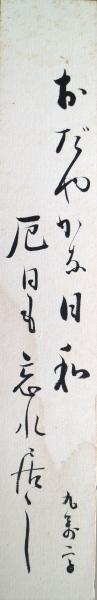 おだやかな日和
厄日も忘れ居し